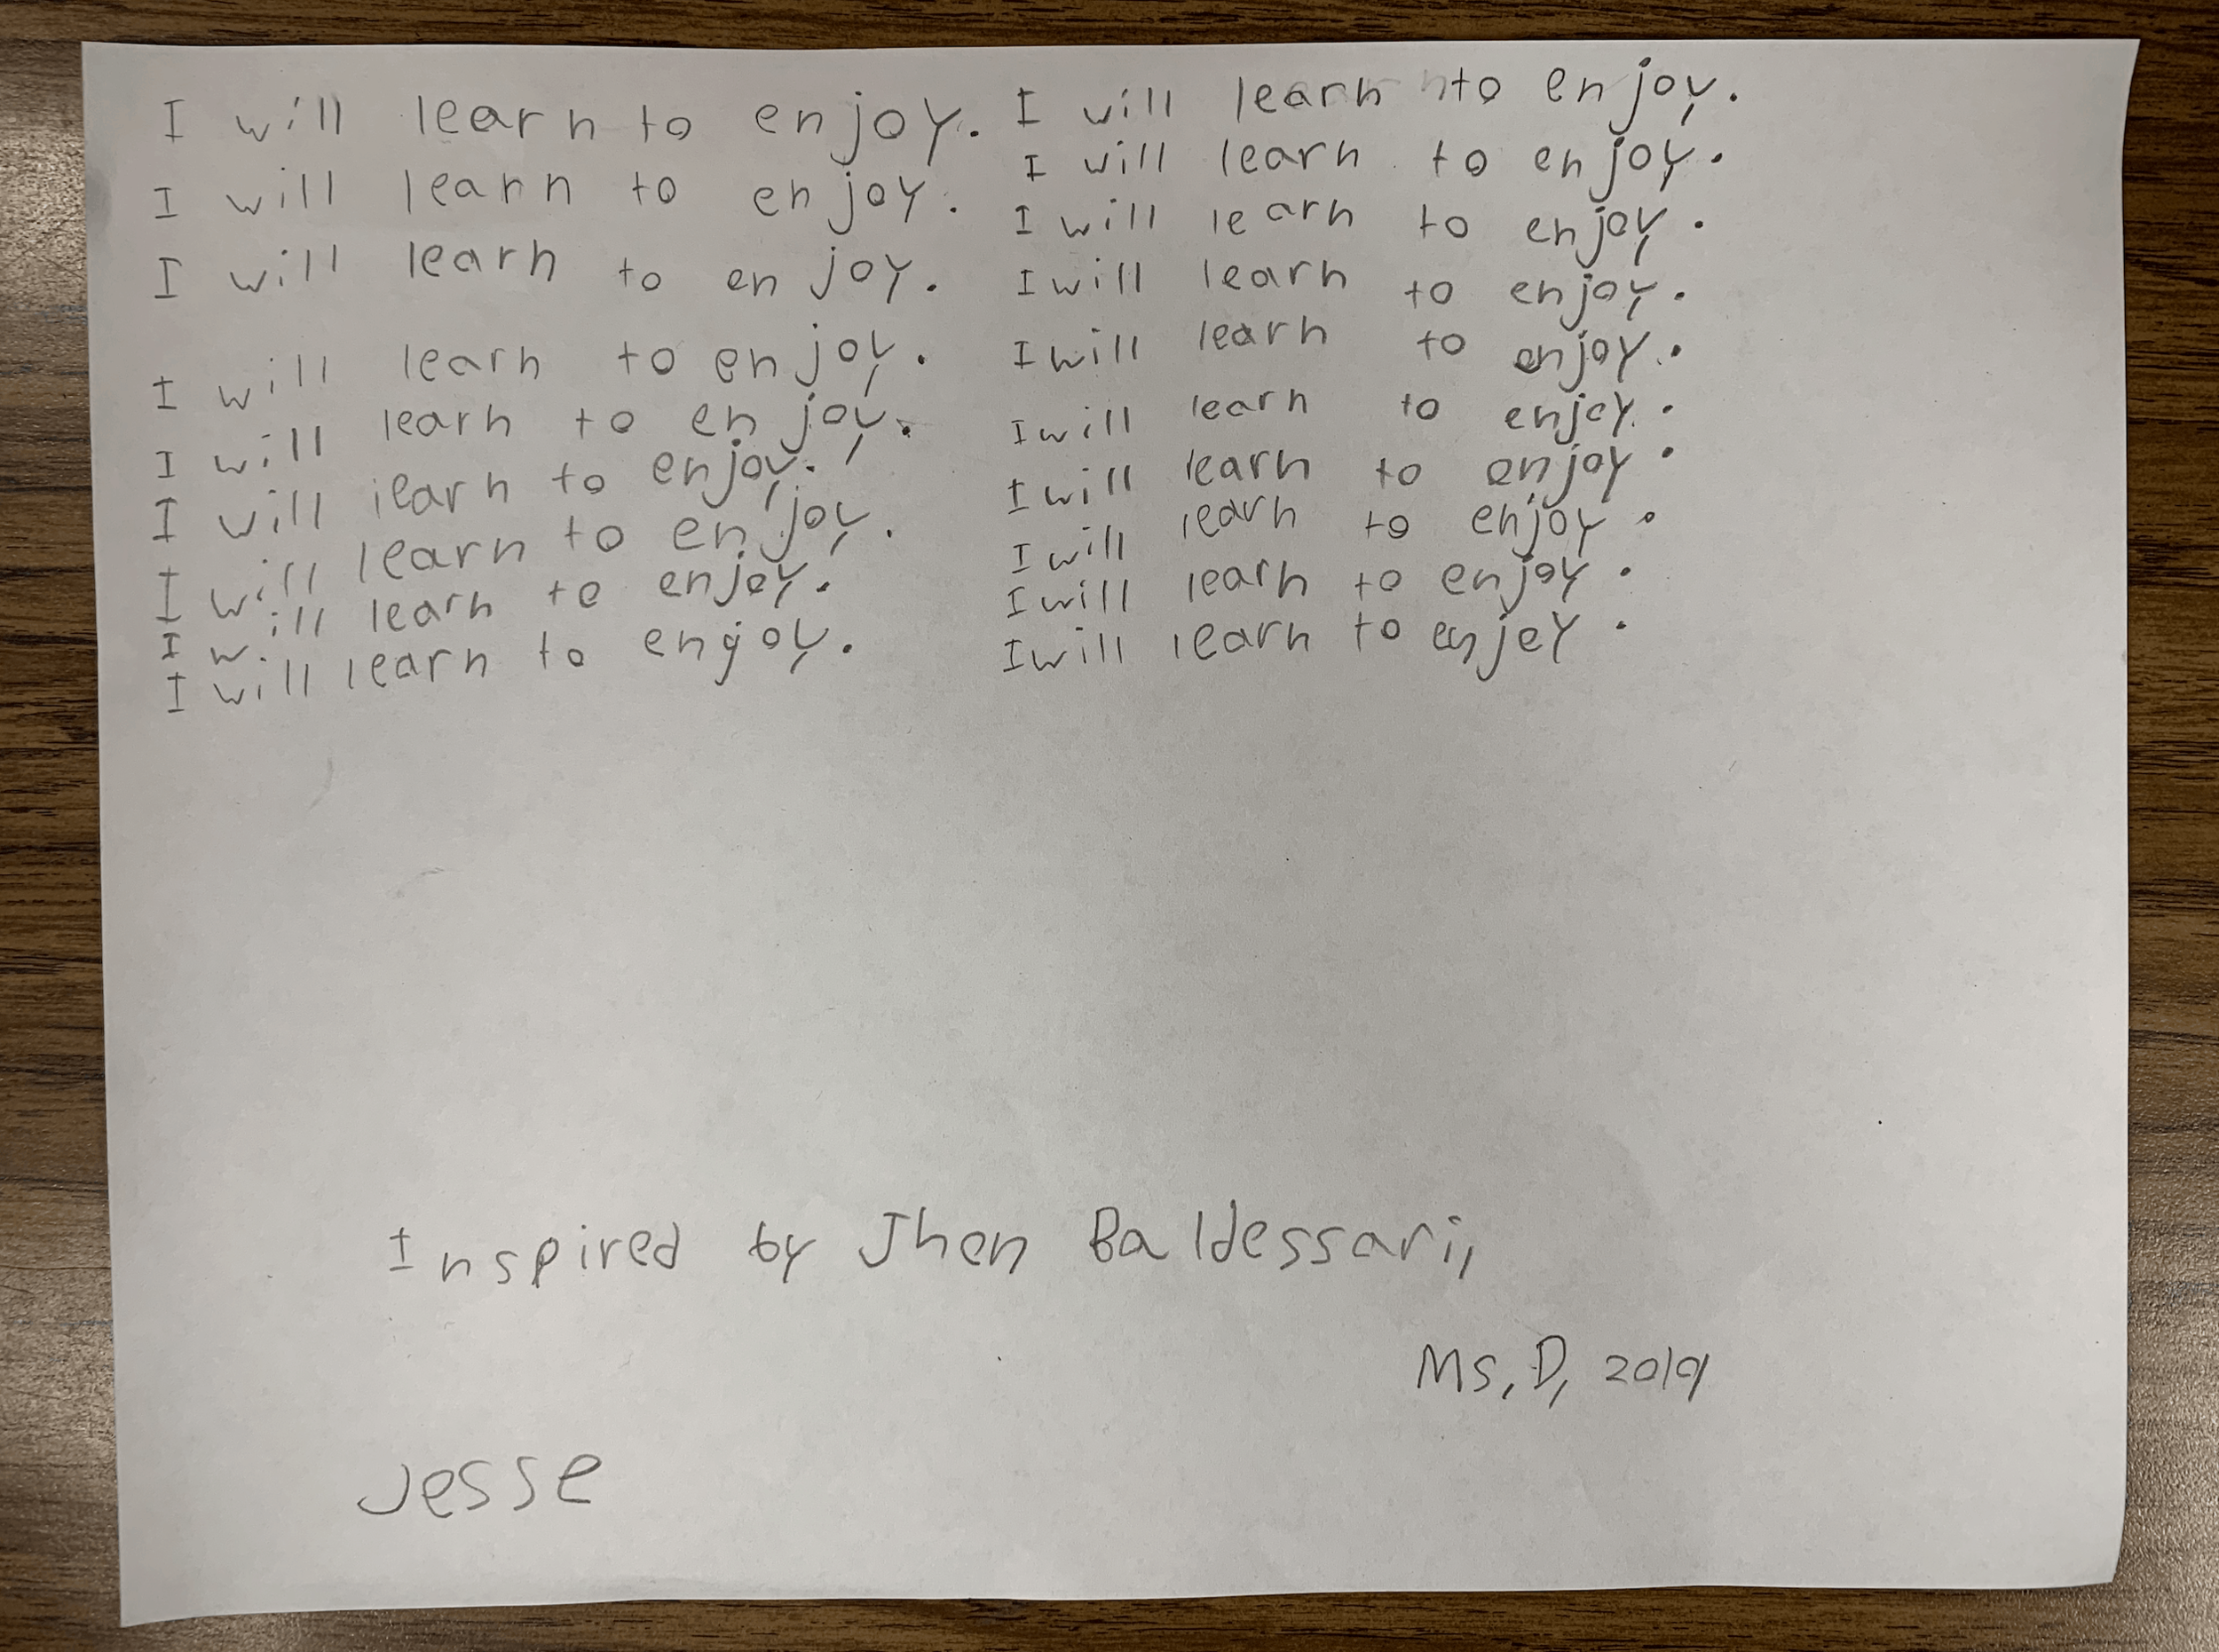 I will learn to enjoy.
I will learn to enjoy.
I will learn to enjoy.
I will learn to enjoy.
I will learn to enjoy.
I will learn to enjoy.
I will learn to enjoy.
I will learn to enjoy.
I will learn to engoy.
I will learn to enjoy.
I will learn to enjoy.
I will learn to enjoy.
I will learn to enjoy.
I will learn to enjoy.
I will learn to enjoy.
I will learn to enjoy.
I will learn to enjoy.
I will learn to enjoy.
I will learn to enjoy.
Inspired by Jhen Baldessari,
Ms, D, 2019
Jesse